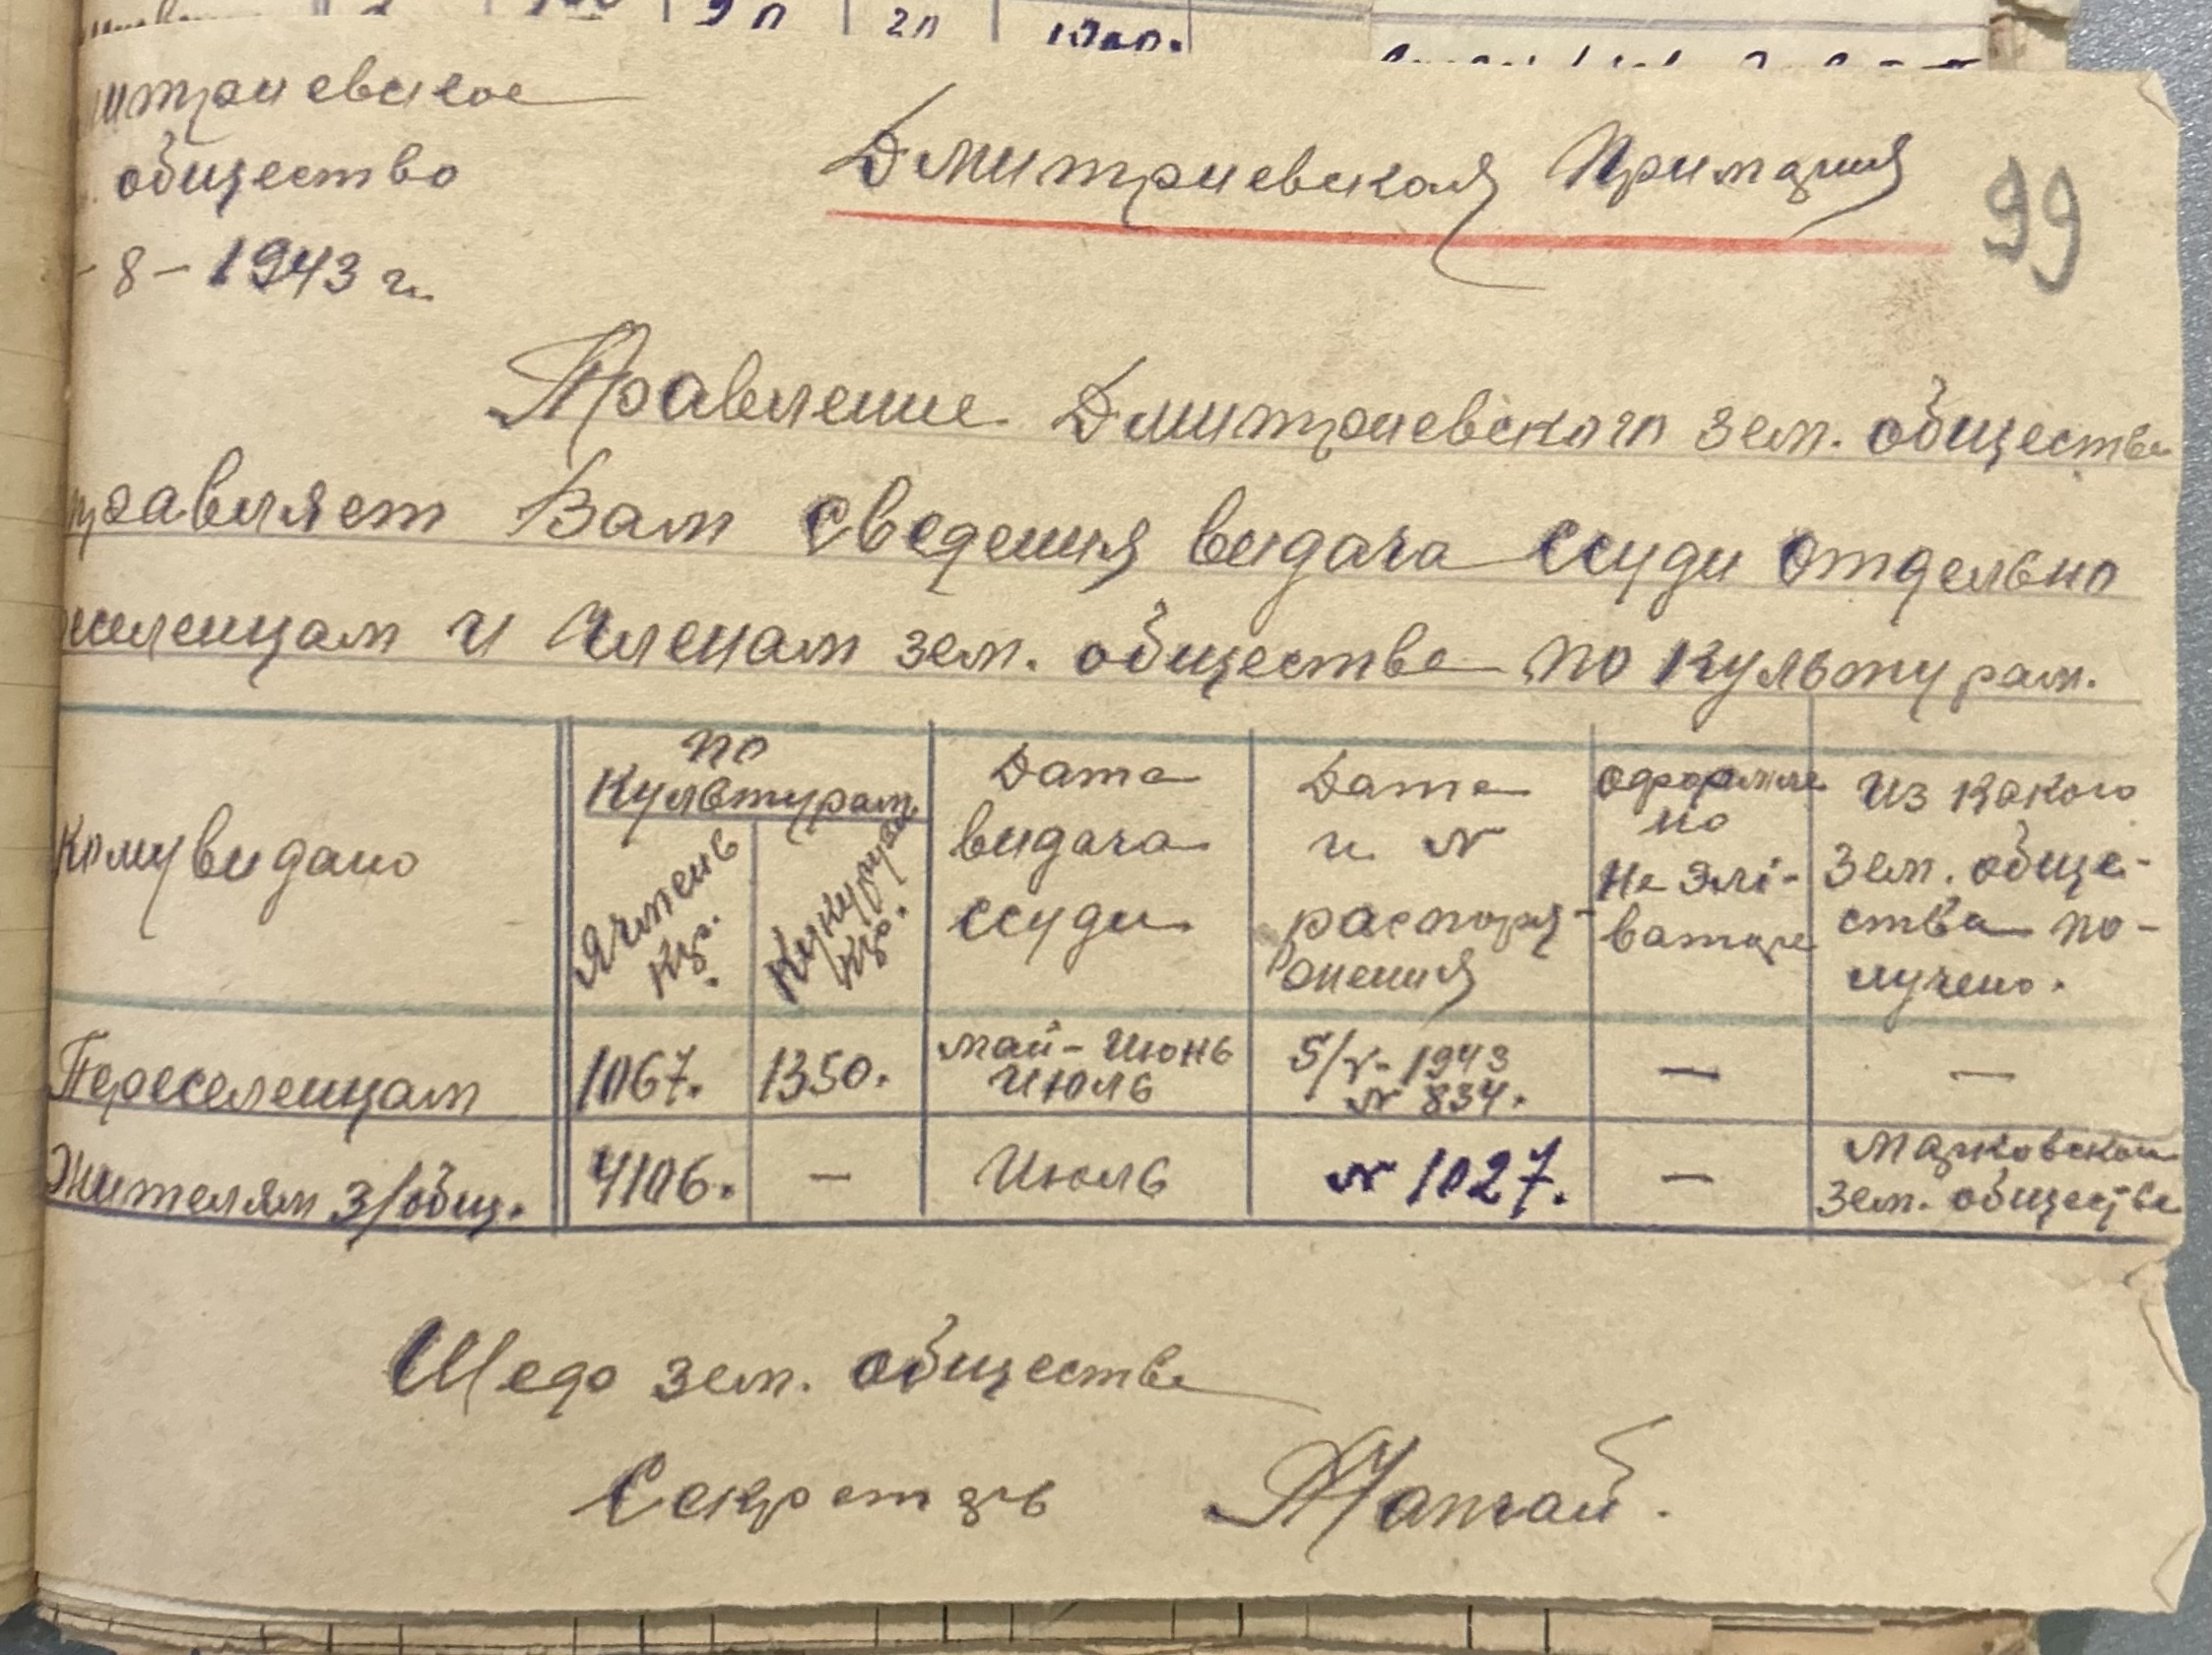 итриевское
общество
- 8 - 1943 г.
Дмитриевская Примария
99
Правление Дмитриевского зем. общества
правляет Вам сведения видача ссуди отдельно
еселенцам и членам зем. общества по культурам.
Кому видано
по культурам
Ячмень кгр.
Кукуруза кгр.
Дата видача ссуди
Дата и № распоря-жения
Оформлено на элi-ваторе
Из какого зем. обще-ства по-лучено.
Переселенцам 1067. 1350. май - Июнь Июль 5/V - 1943 № 834. — —
Жителям з/общ. 4106. — Июль № 1027. — Марковском зем. общества
Шефо зем. общества
Секретарь